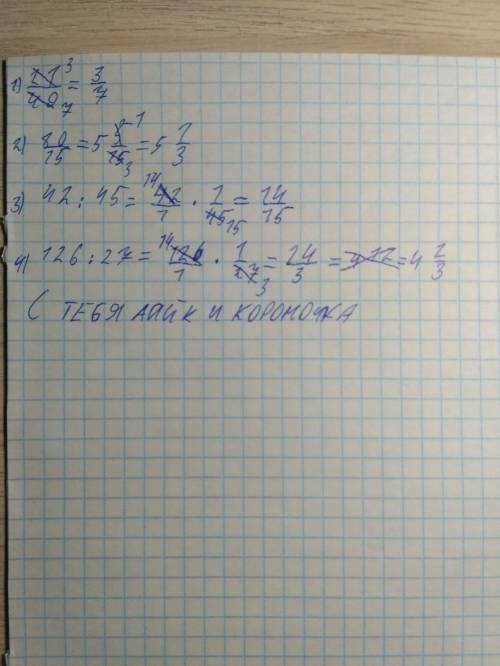 1) 21/49 = 3/7
2) 80/15 = 5 5/15 = 5 1/3
3) 42 : 45 = 42/1 · 1/45 = 14/15
4) 126 : 27 = 126/1 · 1/27 = 14/3 = = 4 2/3
( ТЕБЯ ЛАЙК И КОРОНОЧКА